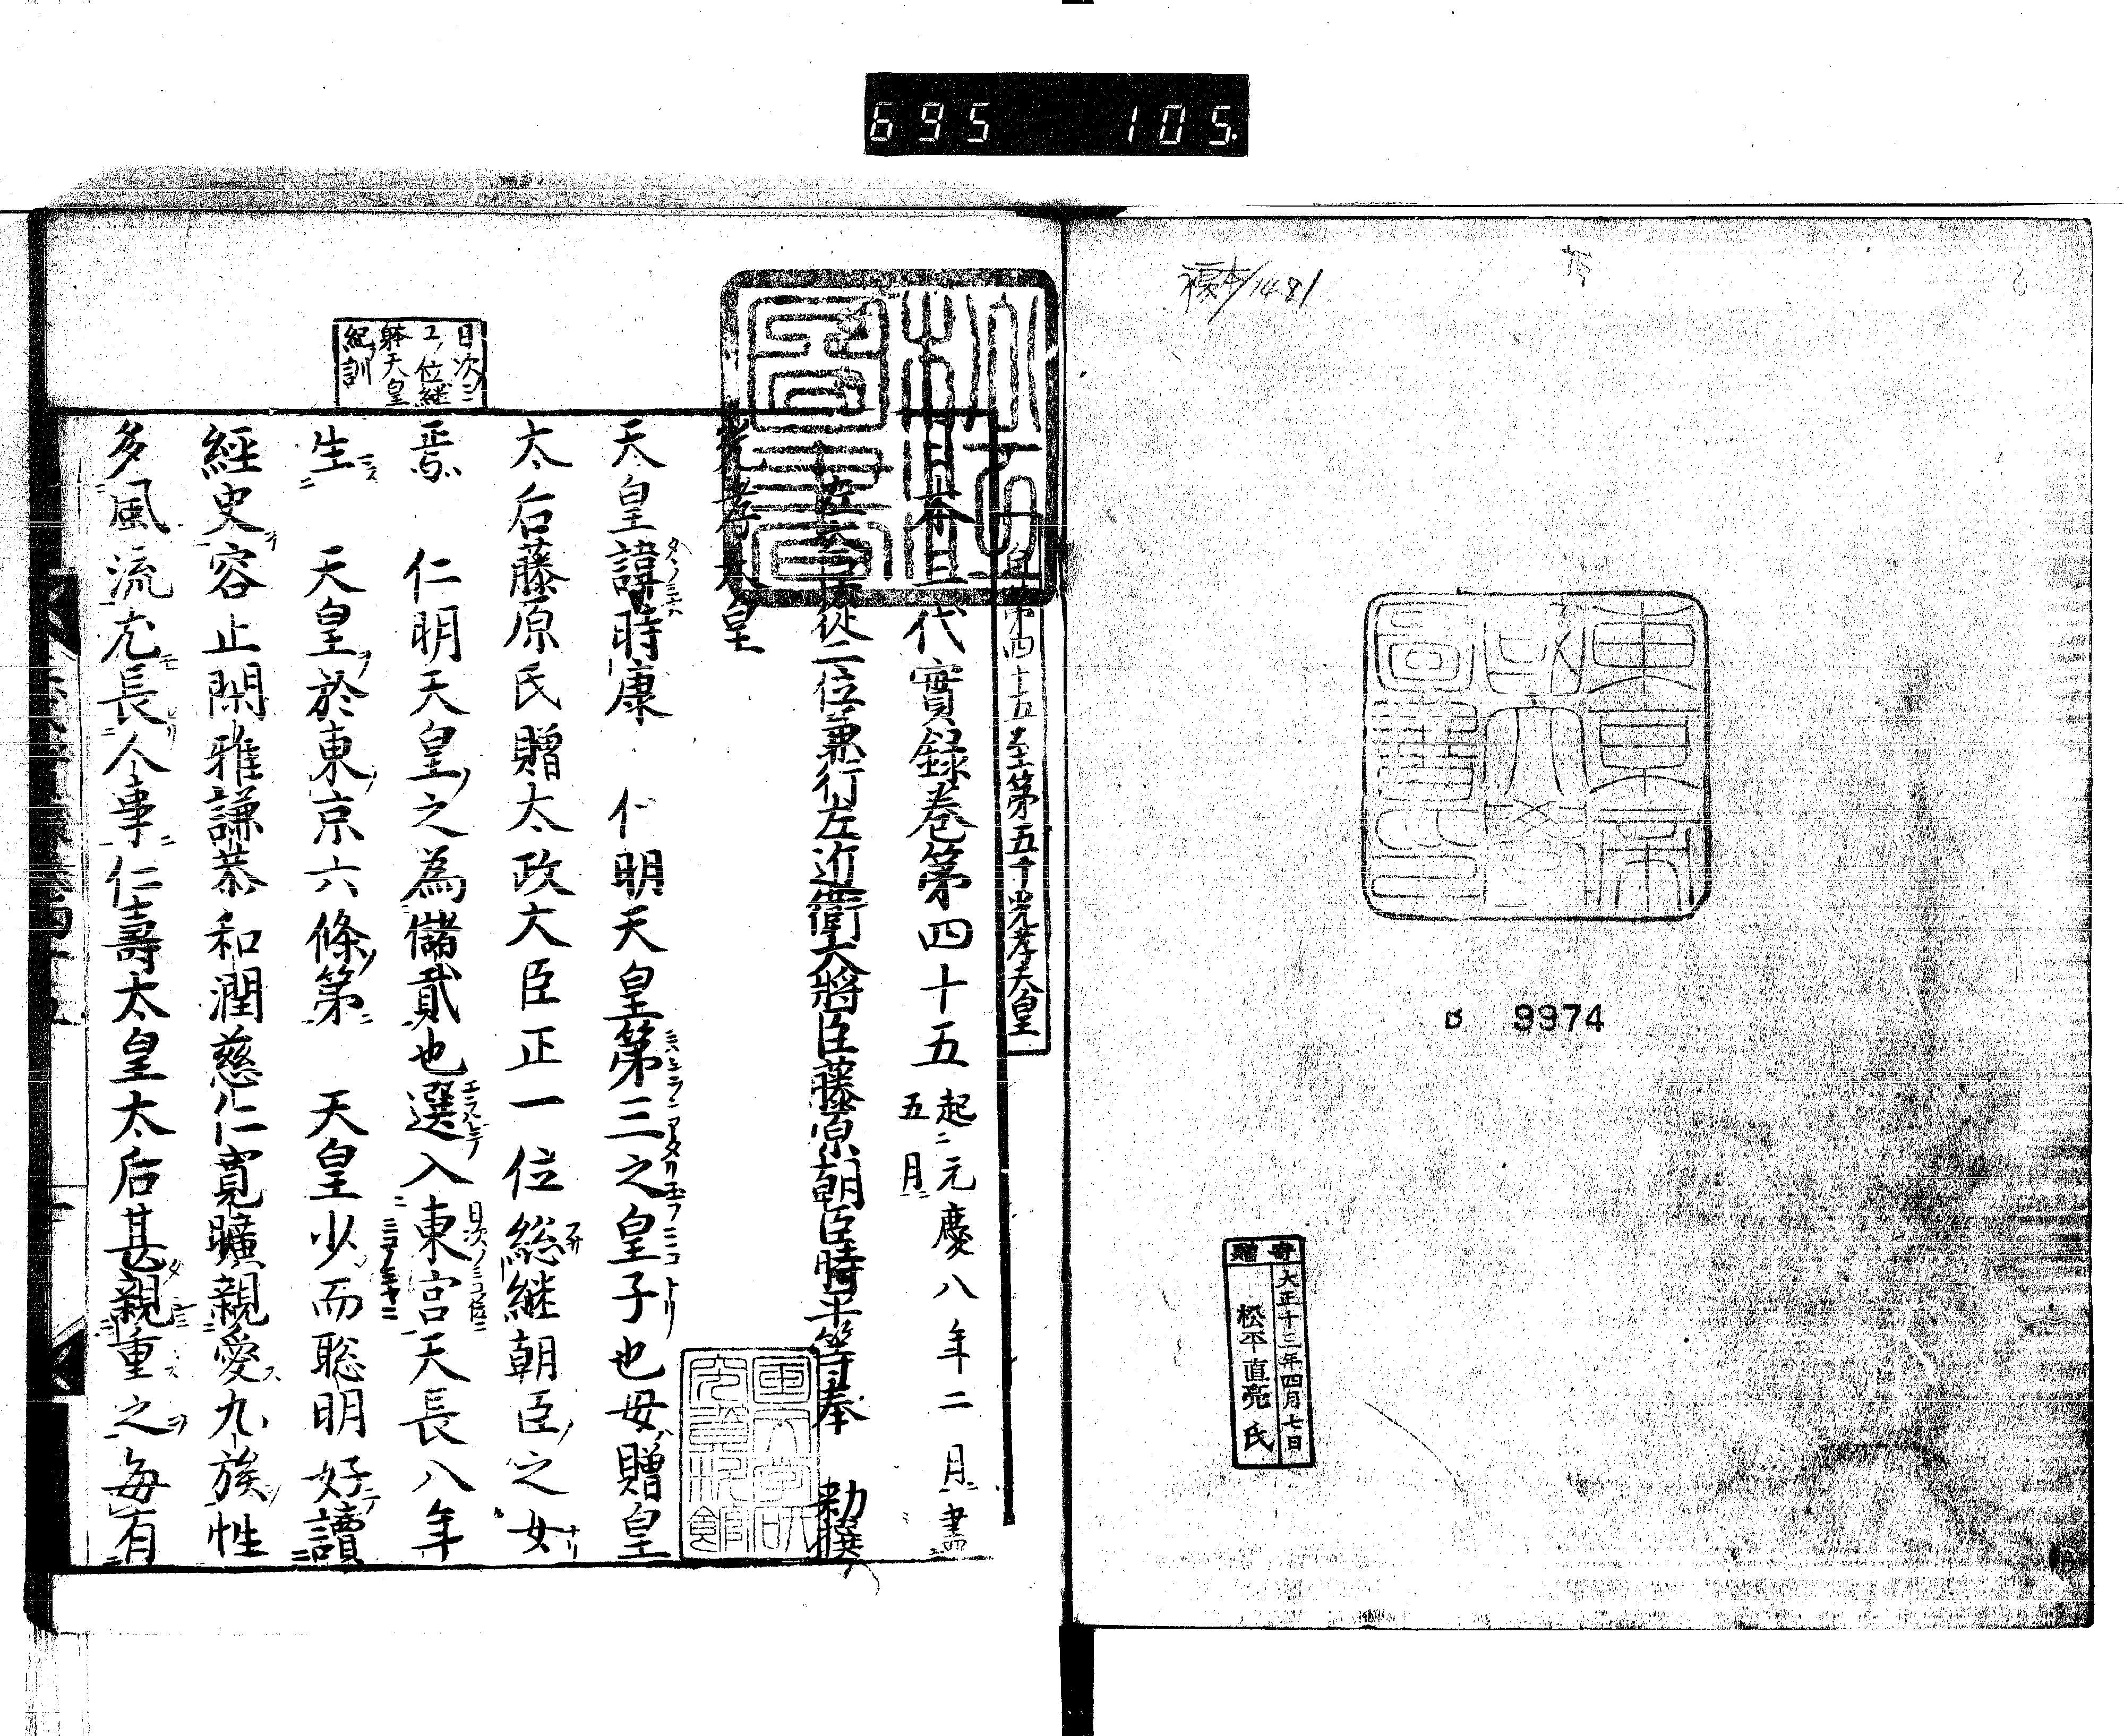 695 105
複本/1481
東京帝國大學圖書印
B 9974
寄贈
大正十三年四月七日
松平直亮氏
自第四十五至第五十光孝天皇
日本三代實録巻第四十五 起元慶八年二月盡五月
左大臣從二位兼行左近衛大將臣藤原朝臣時平等奉 勅撰
光孝天皇
天皇諱時康 仁明天皇第三之皇子也母贈皇
太后藤原氏贈太政大臣正一位総継朝臣之女
焉 仁明天皇之為儲貳也選入東宮天長八年
生 天皇於東京六條第 天皇少而聡明好讀
經史容止閑雅謙恭和潤慈仁寛曠親愛九族性
多風流尤長人事仁壽太皇太后甚親重之毎有
日次ニ
ユノ位継
躰天皇
紀訓